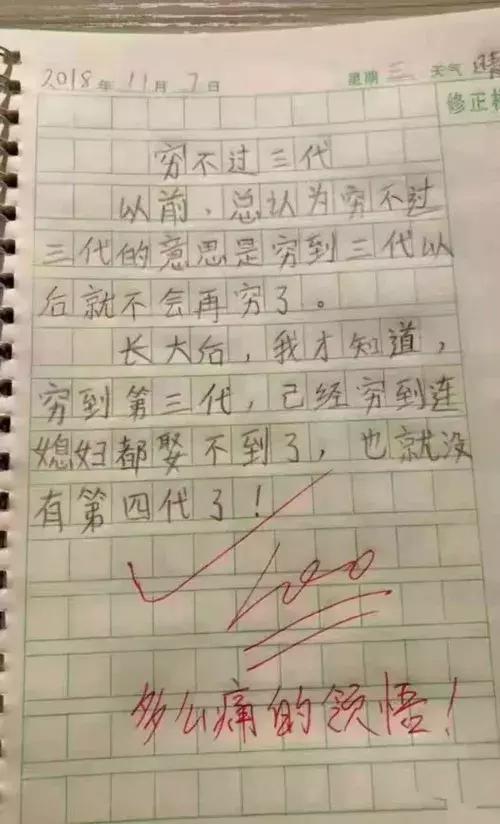 2018年11月7日 星期三 天气
修正栏
穷不过三代
以前,总认为穷不过
三代的意思是穷到三代以
后就不会再穷了。
长大后,我才知道,
穷到第三代,己经穷到连
媳妇都娶不到了,也就没
有第四代了!
100
多么痛的领悟!